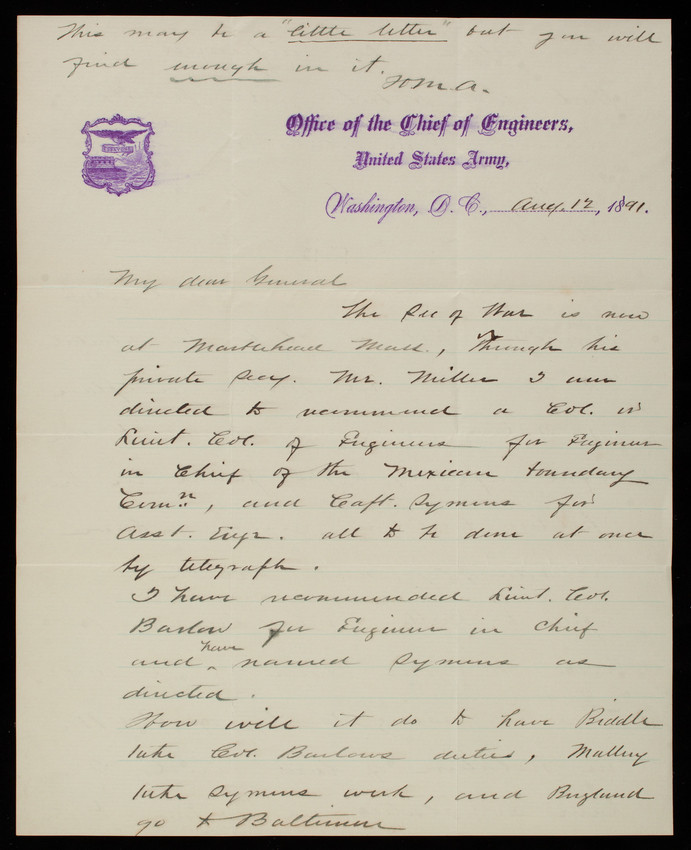 This may be a "little letter" but you will
find enough in it.
H M A.
Office of the Chief of Engineers,
United States Army,
Washington, D. C., Aug. 12, 1891.
My dear General
The Sec of War is now
at Marblehead Mass., Through his
private Secy. Mr. Miller I am
directed to recommend a Col. or
Lieut. Col. of Engineers for Engineer
in Chief of the Mexican boundary
Comn., and Capt. Symons for
Asst. Engr. all to be done at once
by telegraph.
I have recommended Lieut. Col.
Barlow for Engineer in Chief
and have named Symons as
directed.
How will it do to have Biddle
take Col. Barlows duties, Mallery
take Symons work, and Bergland
go to Baltimore